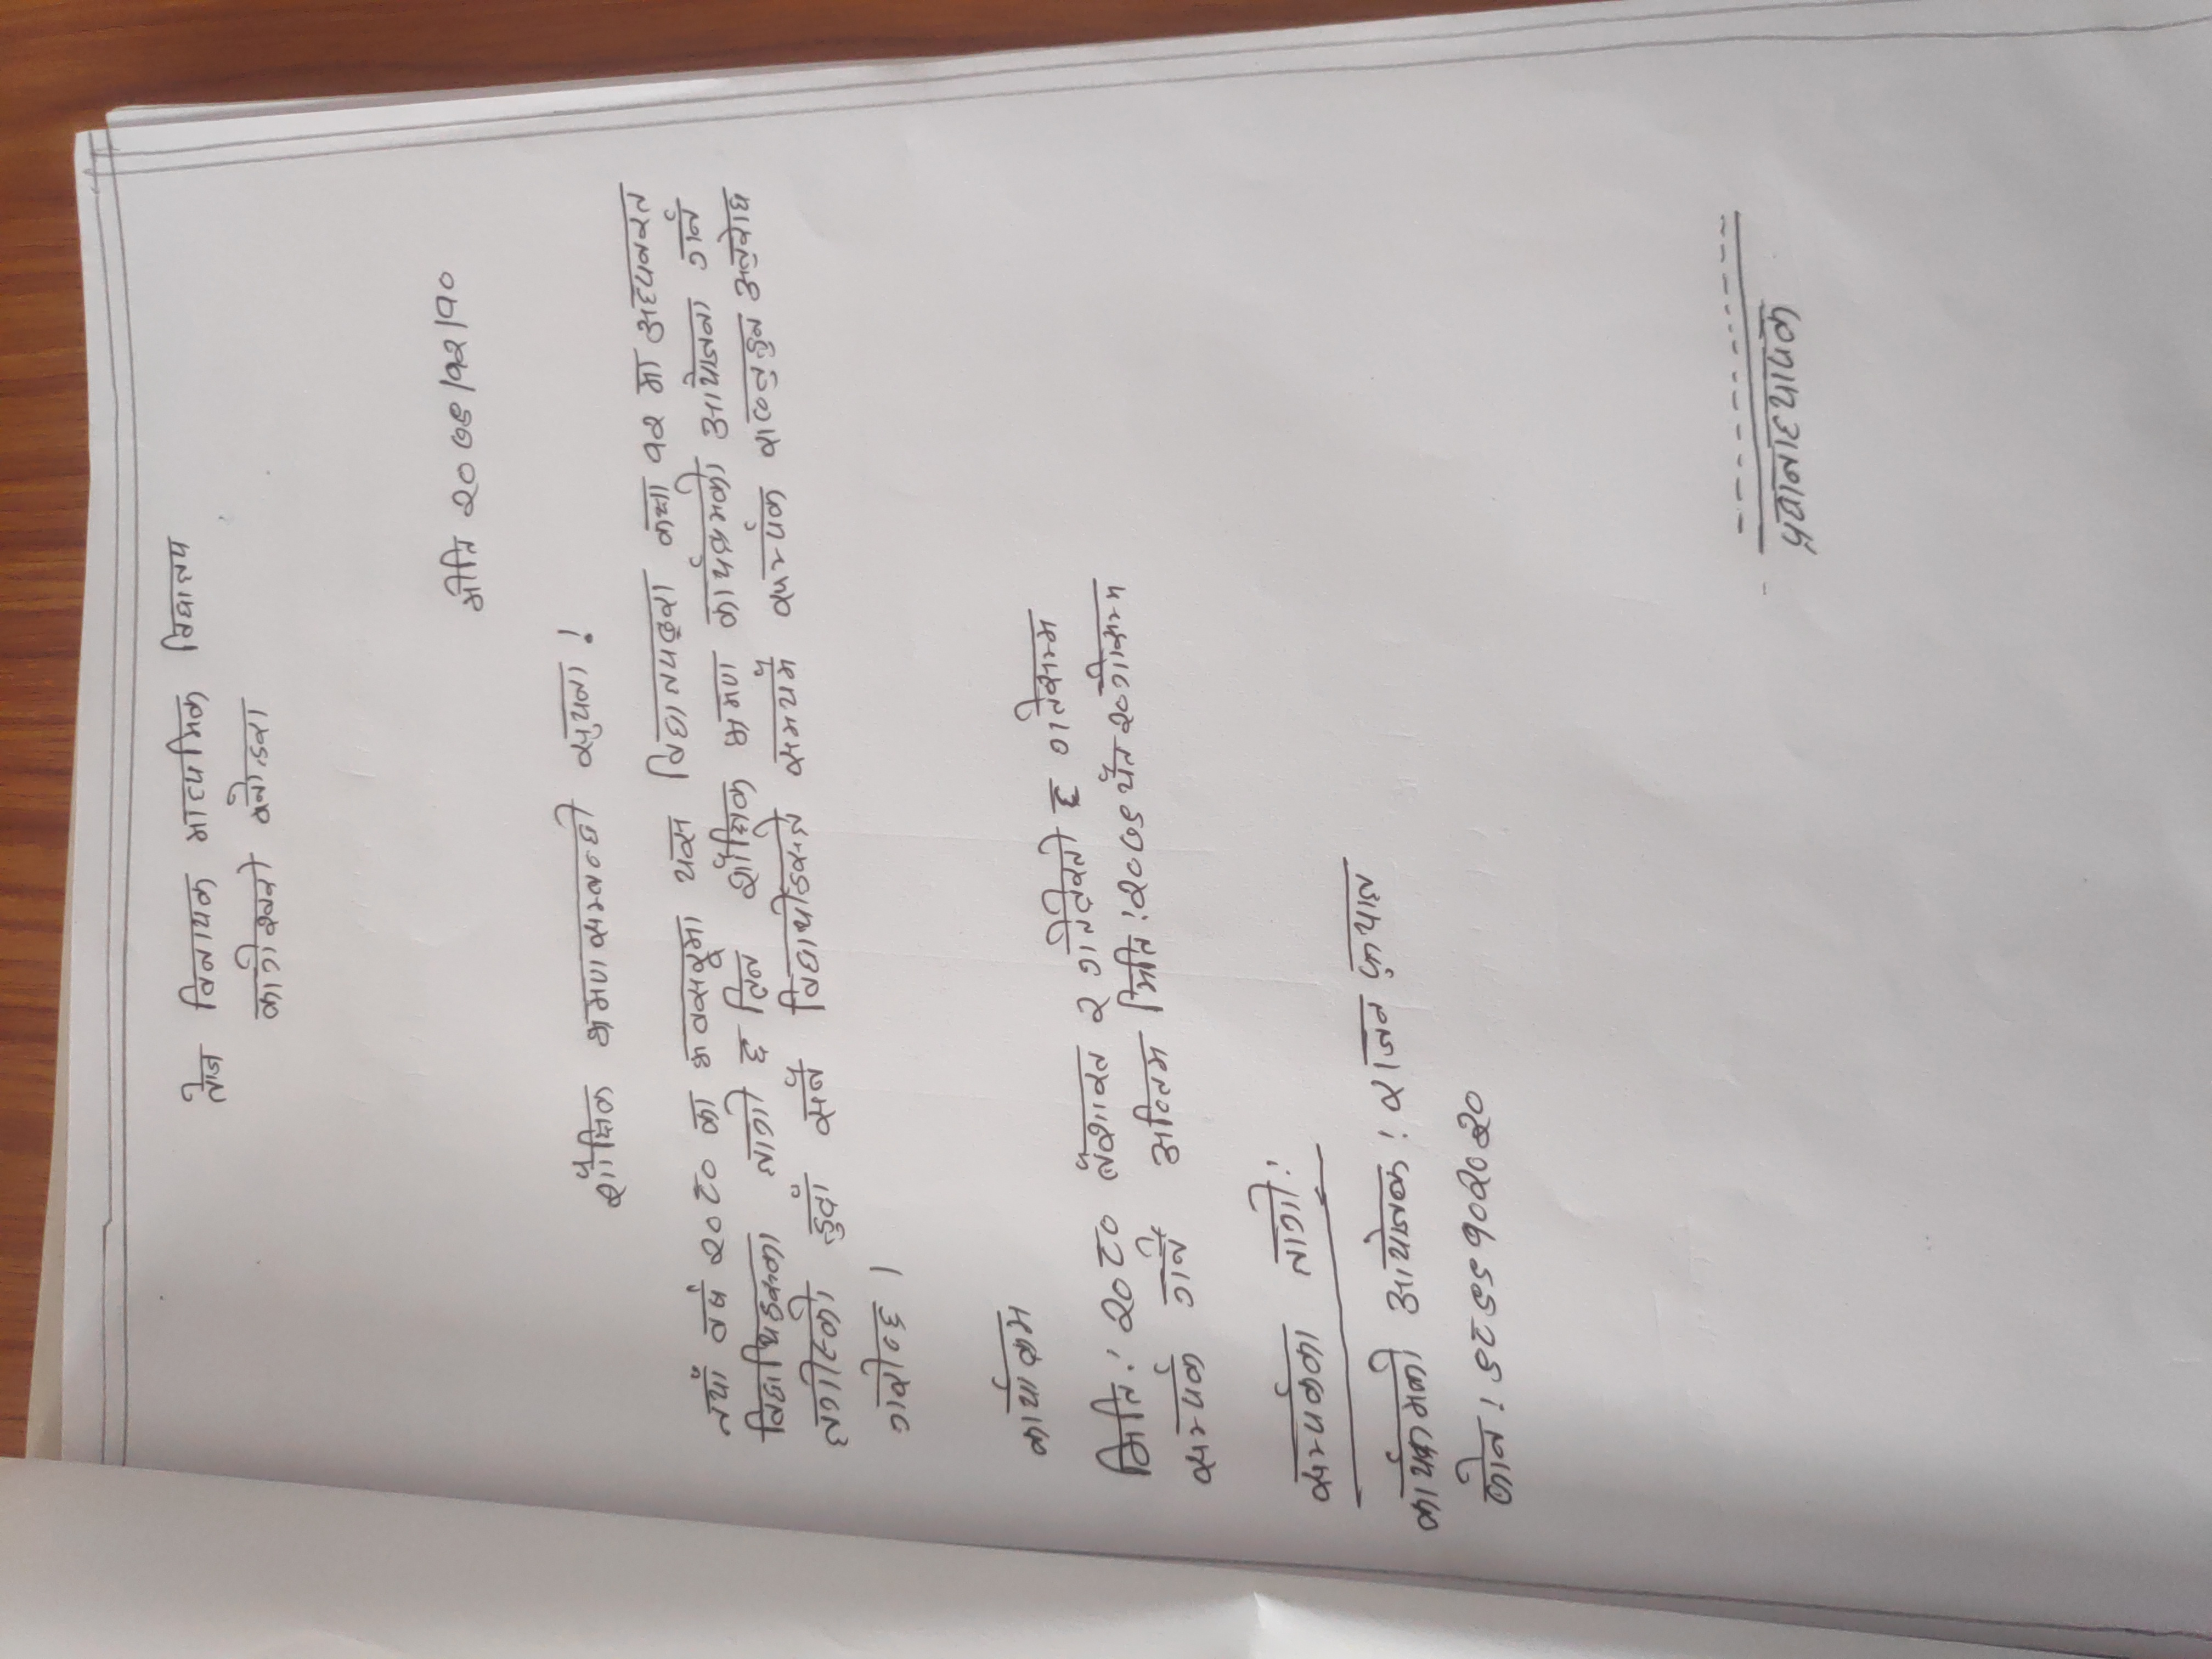 तेज विनायक माध्यमिक विद्यालय
कागेश्वरी मनोहरा
मीति २०७९/१२/१०
शैक्षिक भ्रमणसम्बन्धी सुचना !
नयाँ वर्ष २०८० का अवसरमा यस विद्यालयद्वारा कक्षा १२ मा अध्यनरत
विद्यार्थिहरुका लागी ६ दिन शैक्षिक भ्रमण कार्यक्रमको आयोजना गर्न
लागीएको हुदाँ सबै विद्यार्थीहरुले समयमै सर्म्पक राख्नुहुन अनुरोध
गरीन्छ ।
कार्याक्रम
मिति: २०८० बैशाख २ गतेदेखी ६ गतेसम्म
सर्म्पक गर्ने अन्तिम मिति: २०७९ चैत २० गतेसम्म
सर्म्पकका लागी:
कार्यक्रमको आयोजक: राजन फुयाल
फोन: ९८९९१०२०२०
प्रधानाध्यापक